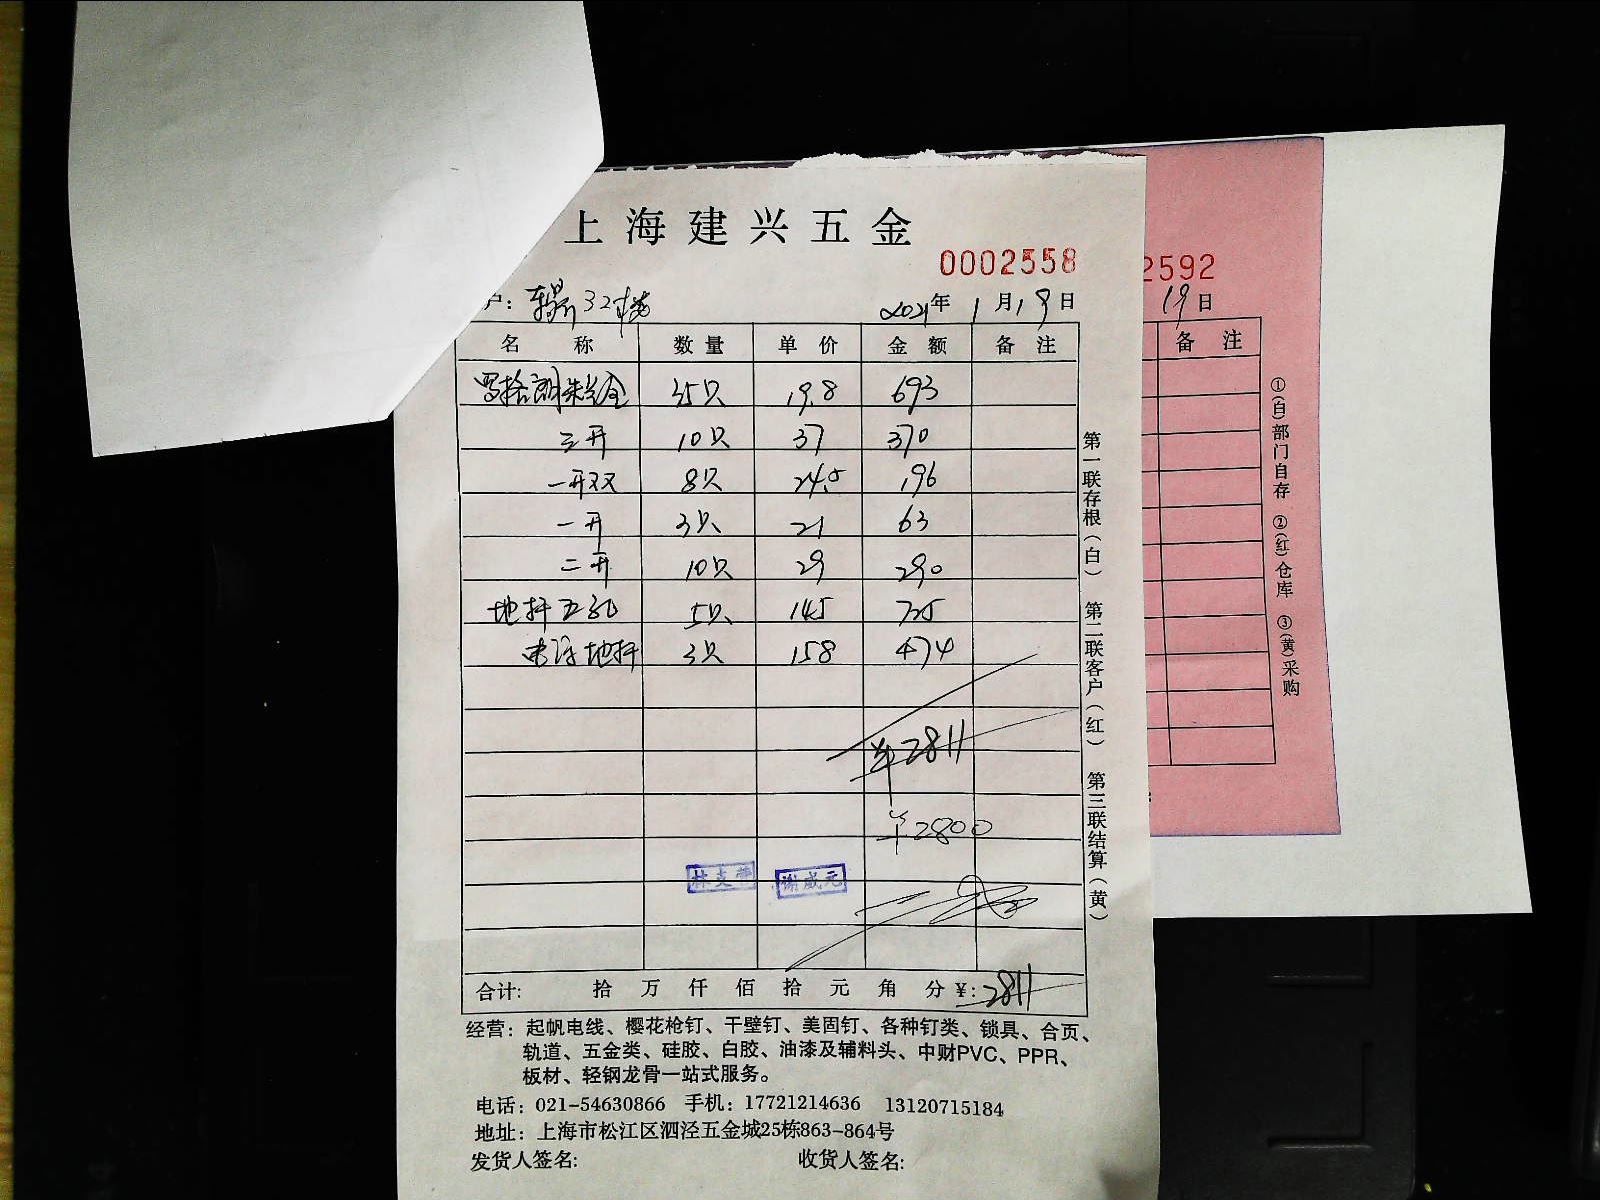 上海建兴五金
0002558
2592
户： 32楼 2021年1月19日
19日
名称 数量 单价 金额 备注
备注
罗格朗 35只 19.8 693
三开 10只 37 370
一开双 8只 24.5 196
一开 3只 21 63
二开 10只 29 290
地插五孔 5只 145 725
地插 3只 158 474
¥2811
¥2800
谢咸元
合计: 拾 万 仟 佰 拾 元 角 分 ¥: 2811
第一联存根（白） 第二联客户（红） 第三联结算（黄）
①(白)部门自存 ②(红)仓库 ③(黄)采购
经营：起帆电线、樱花枪钉、干壁钉、美固钉、各种钉类、锁具、合页、
轨道、五金类、硅胶、白胶、油漆及辅料头、中财PVC、PPR、
板材、轻钢龙骨一站式服务。
电话：021-54630866 手机：17721214636 13120715184
地址：上海市松江区泗泾五金城25栋863-864号
发货人签名: 收货人签名: